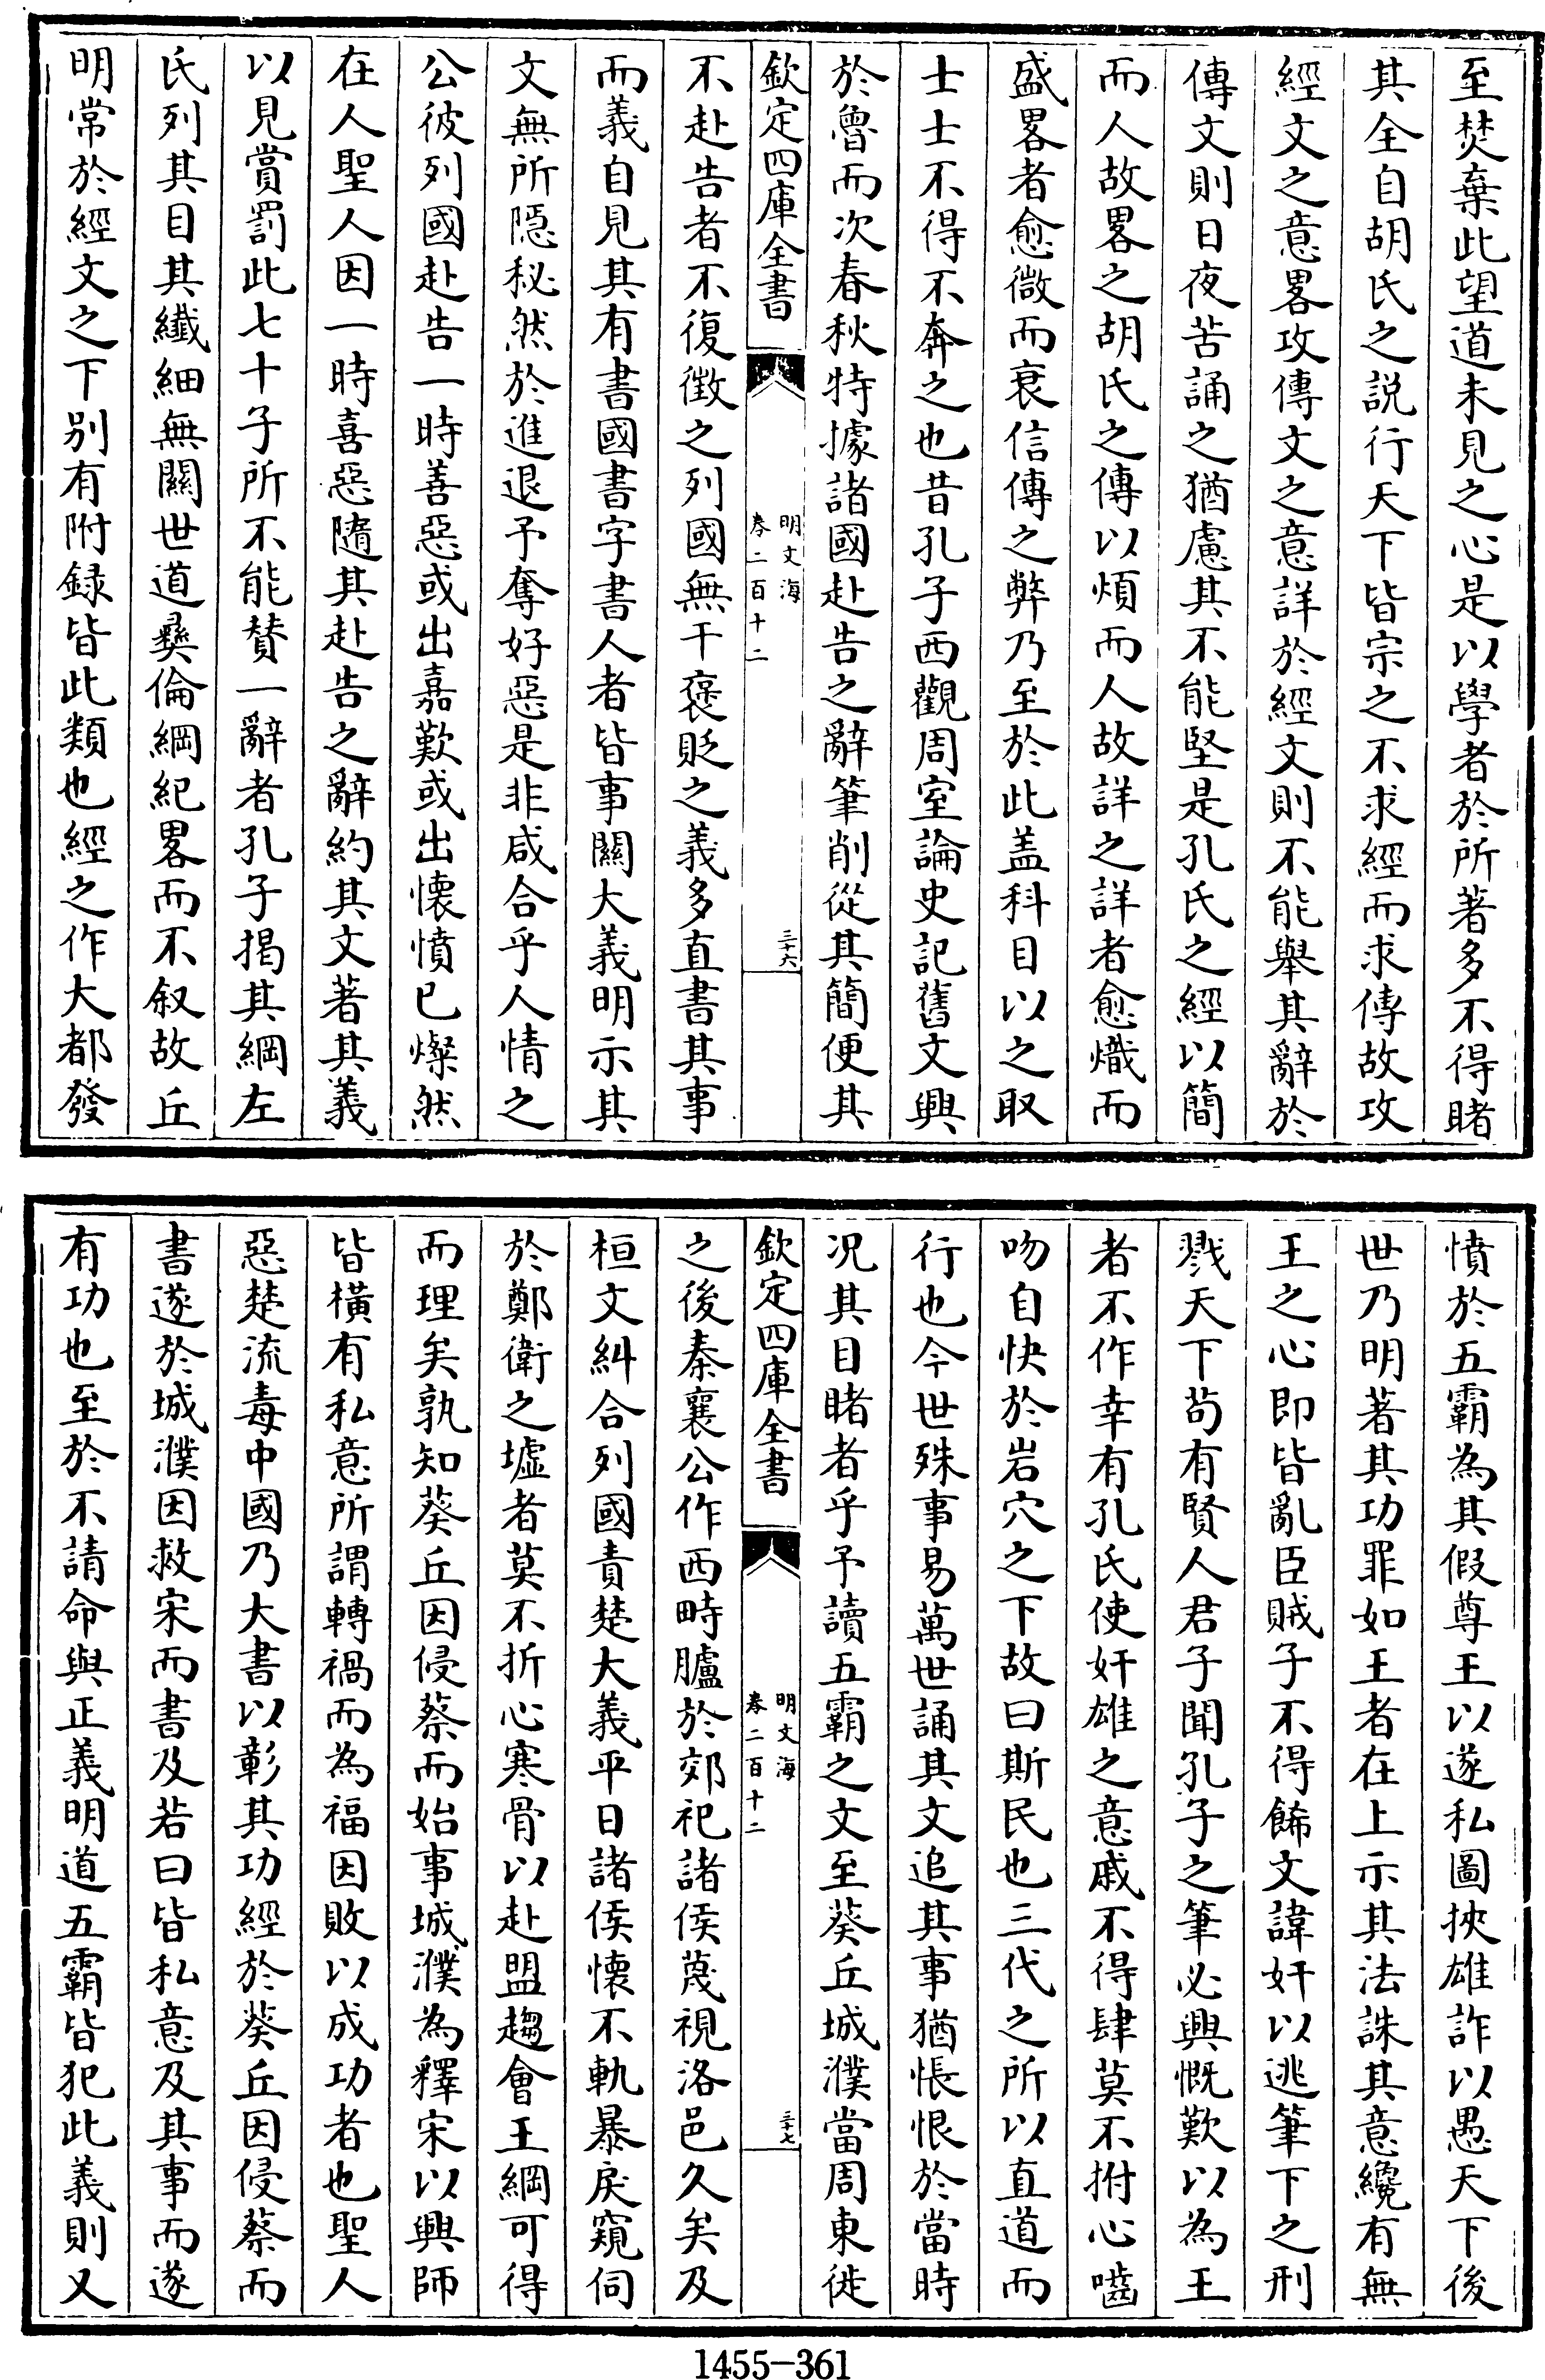 至焚棄此望道未見之心是以學者於所著多不得睹
其全自胡氏之説行天下皆宗之不求經而求傳故攻
經文之意畧攻傳文之意詳於經文則不能舉其辭於
傳文則日夜苦誦之猶慮其不能堅是孔氏之經以簡
而人故畧之胡氏之傳以煩而人故詳之詳者愈熾而
盛畧者愈微而衰信傳之弊乃至於此盖科目以之取
士士不得不奔之也昔孔子西觀周室論史記舊文興
於魯而次春秋特據諸國赴告之辭筆削從其簡便其
欽定四庫全書
明文海
卷二百十二
三十六
不赴告者不復徵之列國無干褒貶之義多直書其事
而義自見其有書國書字書人者皆事關大義明示其
文無所隱秘然於進退予奪好惡是非咸合乎人情之
公彼列國赴告一時善惡或出嘉歎或出懷憤已燦然
在人聖人因一時喜惡隨其赴告之辭約其文著其義
以見賞罰此七十子所不能賛一辭者孔子揭其綱左
氏列其目其纎細無關世道彜倫綱紀畧而不叙故丘
明常於經文之下别有附録皆此類也經之作大都發
憤於五霸為其假尊王以遂私圖挾雄詐以愚天下後
世乃明著其功罪如王者在上示其法誅其意纔有無
王之心即皆亂臣賊子不得餙文諱奸以逃筆下之刑
戮天下苟有賢人君子聞孔子之筆必興慨歎以為王
者不作幸有孔氏使奸雄之意戚不得肆莫不拊心嚙
吻自快於岩穴之下故曰斯民也三代之所以直道而
行也今世殊事易萬世誦其文追其事猶悵恨於當時
况其目睹者乎予讀五霸之文至葵丘城濮當周東徙
欽定四庫全書
明文海
卷二百十二
三十七
之後秦襄公作西畤臚於郊祀諸侯蔑視洛邑久矣及
桓文糾合列國責楚大義平日諸侯懷不軌暴戾窺伺
於鄭衛之墟者莫不折心寒骨以赴盟趨會王綱可得
而理矣孰知葵丘因侵蔡而始事城濮為釋宋以興師
皆橫有私意所謂轉禍而為福因敗以成功者也聖人
惡楚流毒中國乃大書以彰其功經於葵丘因侵蔡而
書遂於城濮因救宋而書及若曰皆私意及其事而遂
有功也至於不請命與正義明道五霸皆犯此義則又
1455-361